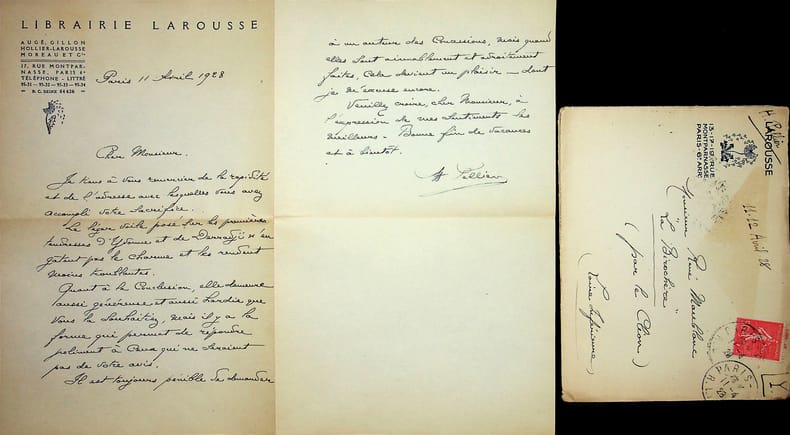 LIBRAIRIE LAROUSSE
AUGÉ, GILLON
HOLLIER-LAROUSSE
MOREAU ET Cie
17, RUE MONTPAR-
NASSE, PARIS 6e
TÉLÉPHONE - LITTRÉ
95-31 — 95-32 — 95-33 — 95-34
R. C. SEINE 64 626
Paris 11 Avril 1928
Cher Monsieur.
Je tiens à vous remercier de la rapidité
et de l'adresse avec lesquelles vous avez
accompli votre sacrifice.
Le léger voile posé sur les premières
tendresses d'Yvonne et de n'en
gâtent pas le charme et les rendent
moins troublantes.
Quant à la Conclusion, elle demeure
aussi généreuse et aussi hardie que
vous la souhaitiez, mais il y a la
forme qui permet de répondre
poliment à Ceux qui ne seraient
pas de votre avis.
Il est toujours pénible de demander
à un auteur des Concessions, mais quand
elles sont aimablement et adroitement
faites, cela devient un plaisir — dont
je m'excuse encore.
Veuillez croire, cher Monsieur, à
l'expression de mes sentiments les
meilleurs - Bonne fin de vacances
et à bientôt.
LAROUSSE
13-17-19, RUE
MONTPARNASSE
PARIS-6e ARRt
11-12 Avril 28
Monsieur René Maublanc
"La Birochère"
(par le Clion)
(Loire Inférieure)
PARIS
11-4
28